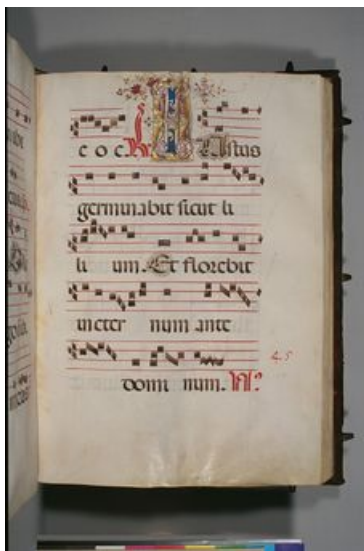 e o c. R. Iustus
germinabit sicut li
li um. Et florebit
ineter num ante
domi num. V.
4.5